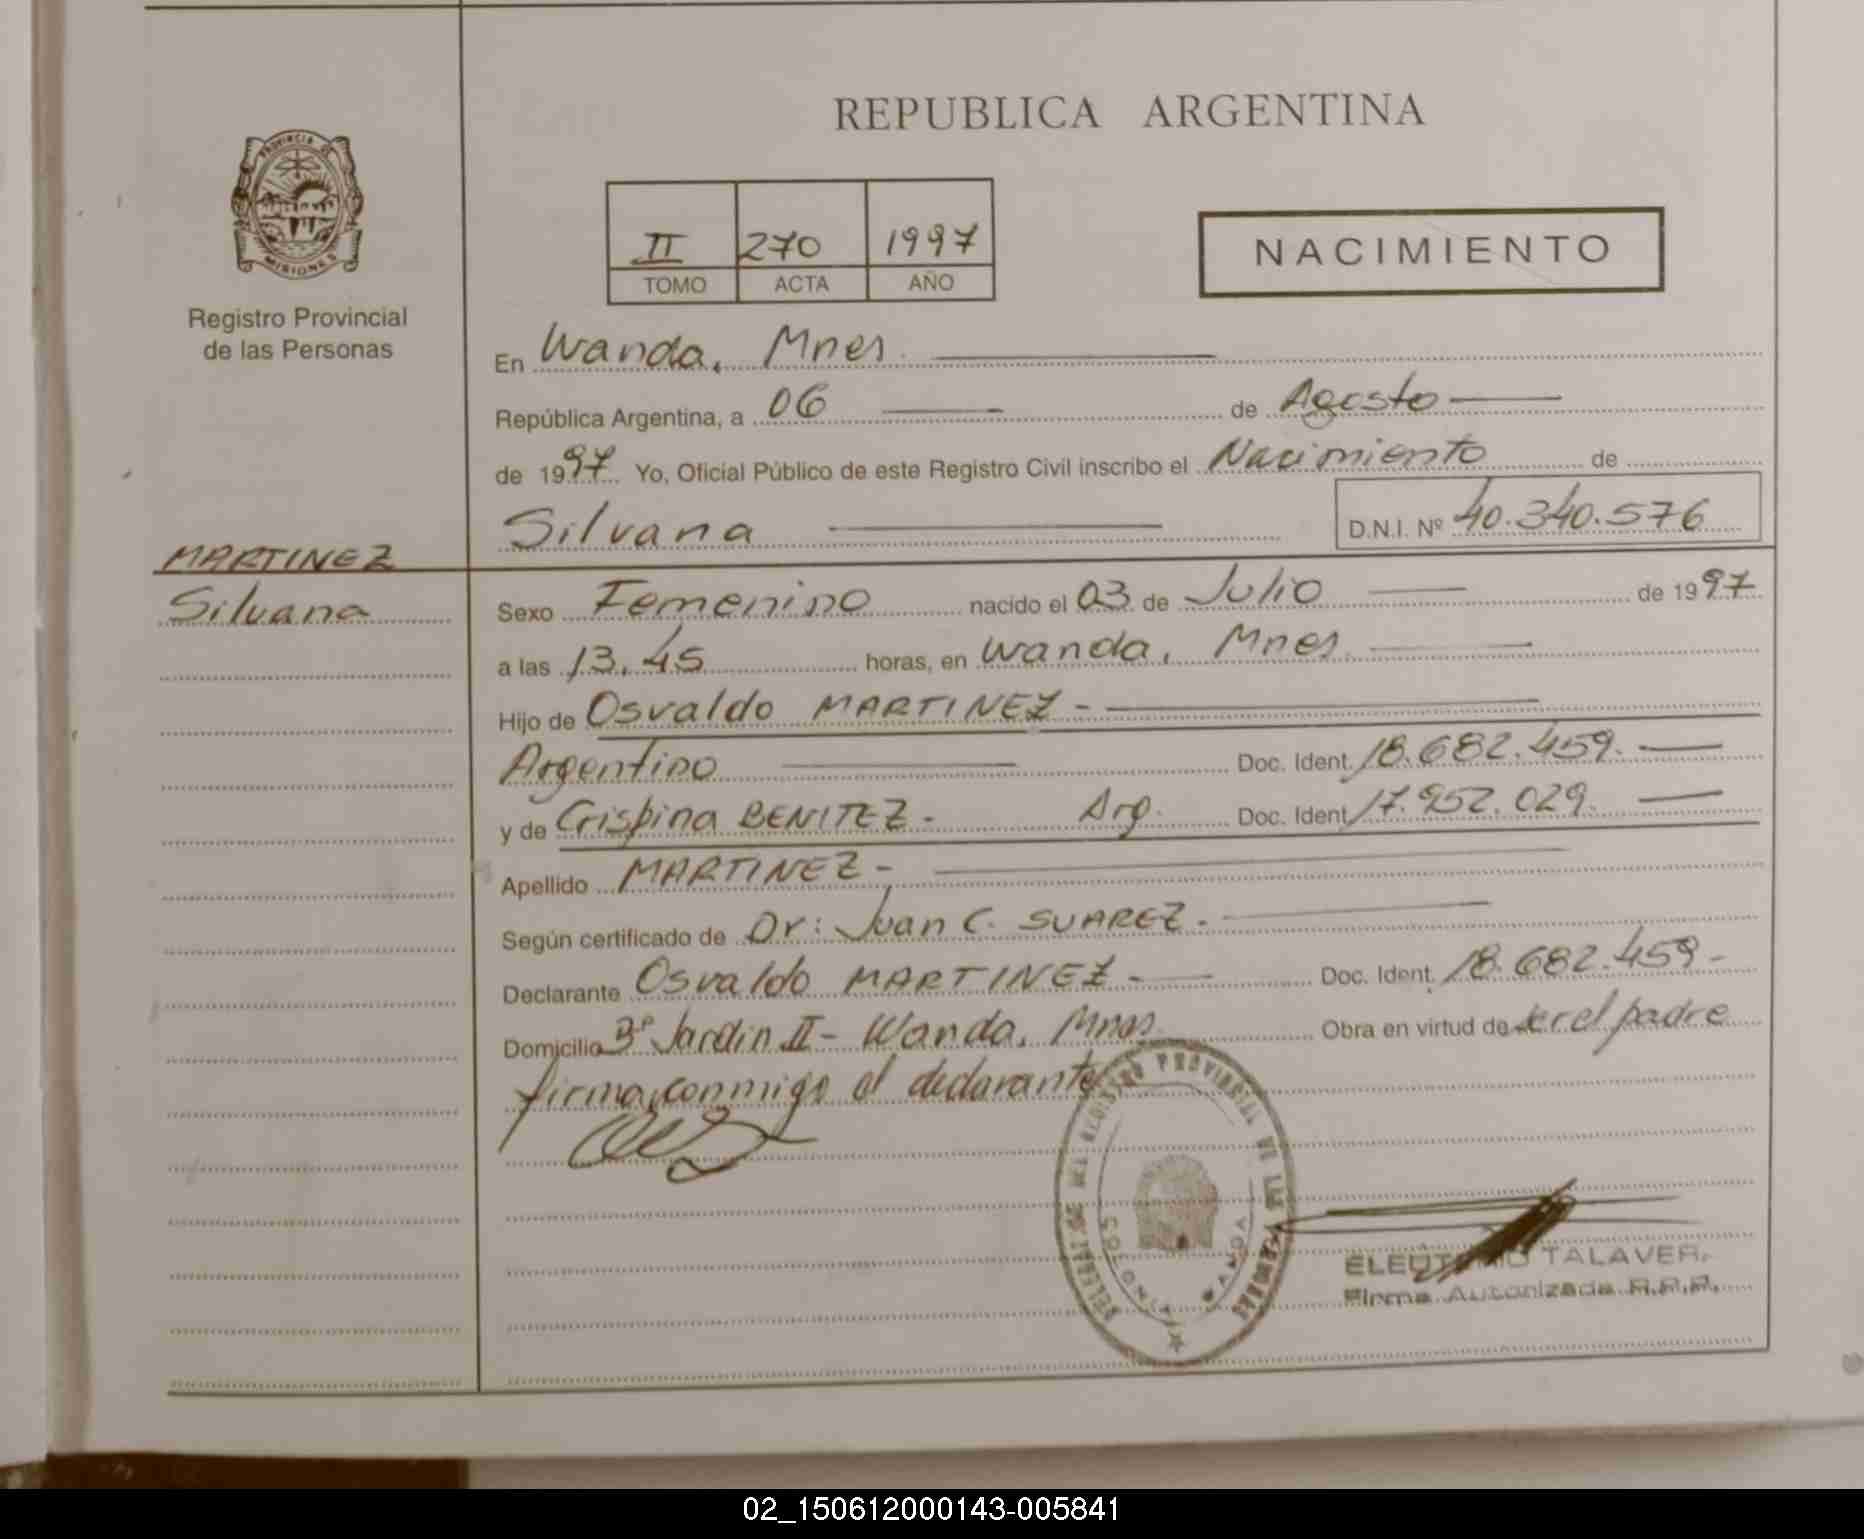 REPUBLICA ARGENTINA
PROVINCIA DE
MISIONES
Registro Provincial
de las Personas
II 270 1997
TOMO ACTA AÑO
NACIMIENTO
En Wanda, Mnes.
República Argentina, a 06 de Agosto
de 1997 Yo, Oficial Público de este Registro Civil inscribo el Nacimiento de
Silvana D.N.I. Nº 40.340.576
MARTINEZ
Silvana
Sexo Femenino nacido el 03 de Julio de 1997
a las 13.45 horas, en Wanda, Mnes.
Hijo de Osvaldo MARTINEZ -
Argentino Doc. Ident. 18.682.459.
y de Crispina BENITEZ - Arg. Doc. Ident. 17.952.029.
Apellido MARTINEZ -
Según certificado de Dr: Juan C. SUAREZ.
Declarante Osvaldo MARTINEZ - Doc. Ident. 18.682.459-
Domicilio Bº Jardin II - Wanda, Mnes. Obra en virtud de ser el padre
firma conmigo el declarante
REGISTRO PROVINCIAL DE LAS PERSONAS
COLONIA WANDA
TALAVER
Firma Autorizada R.P.P.
02_150612000143-005841